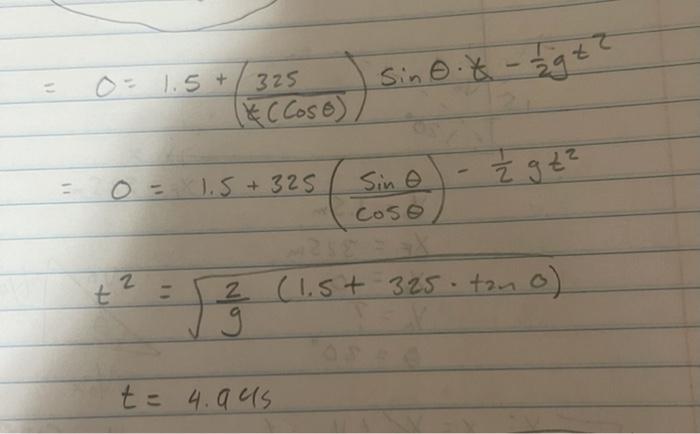 = 0 = 1.5 + (325 / t(Cosθ)) Sinθ · t - 1/2 g t²
= 0 = 1.5 + 325 (Sinθ / Cosθ) - 1/2 g t²
t² = √(2/g (1.5 + 325 · tan θ))
t =